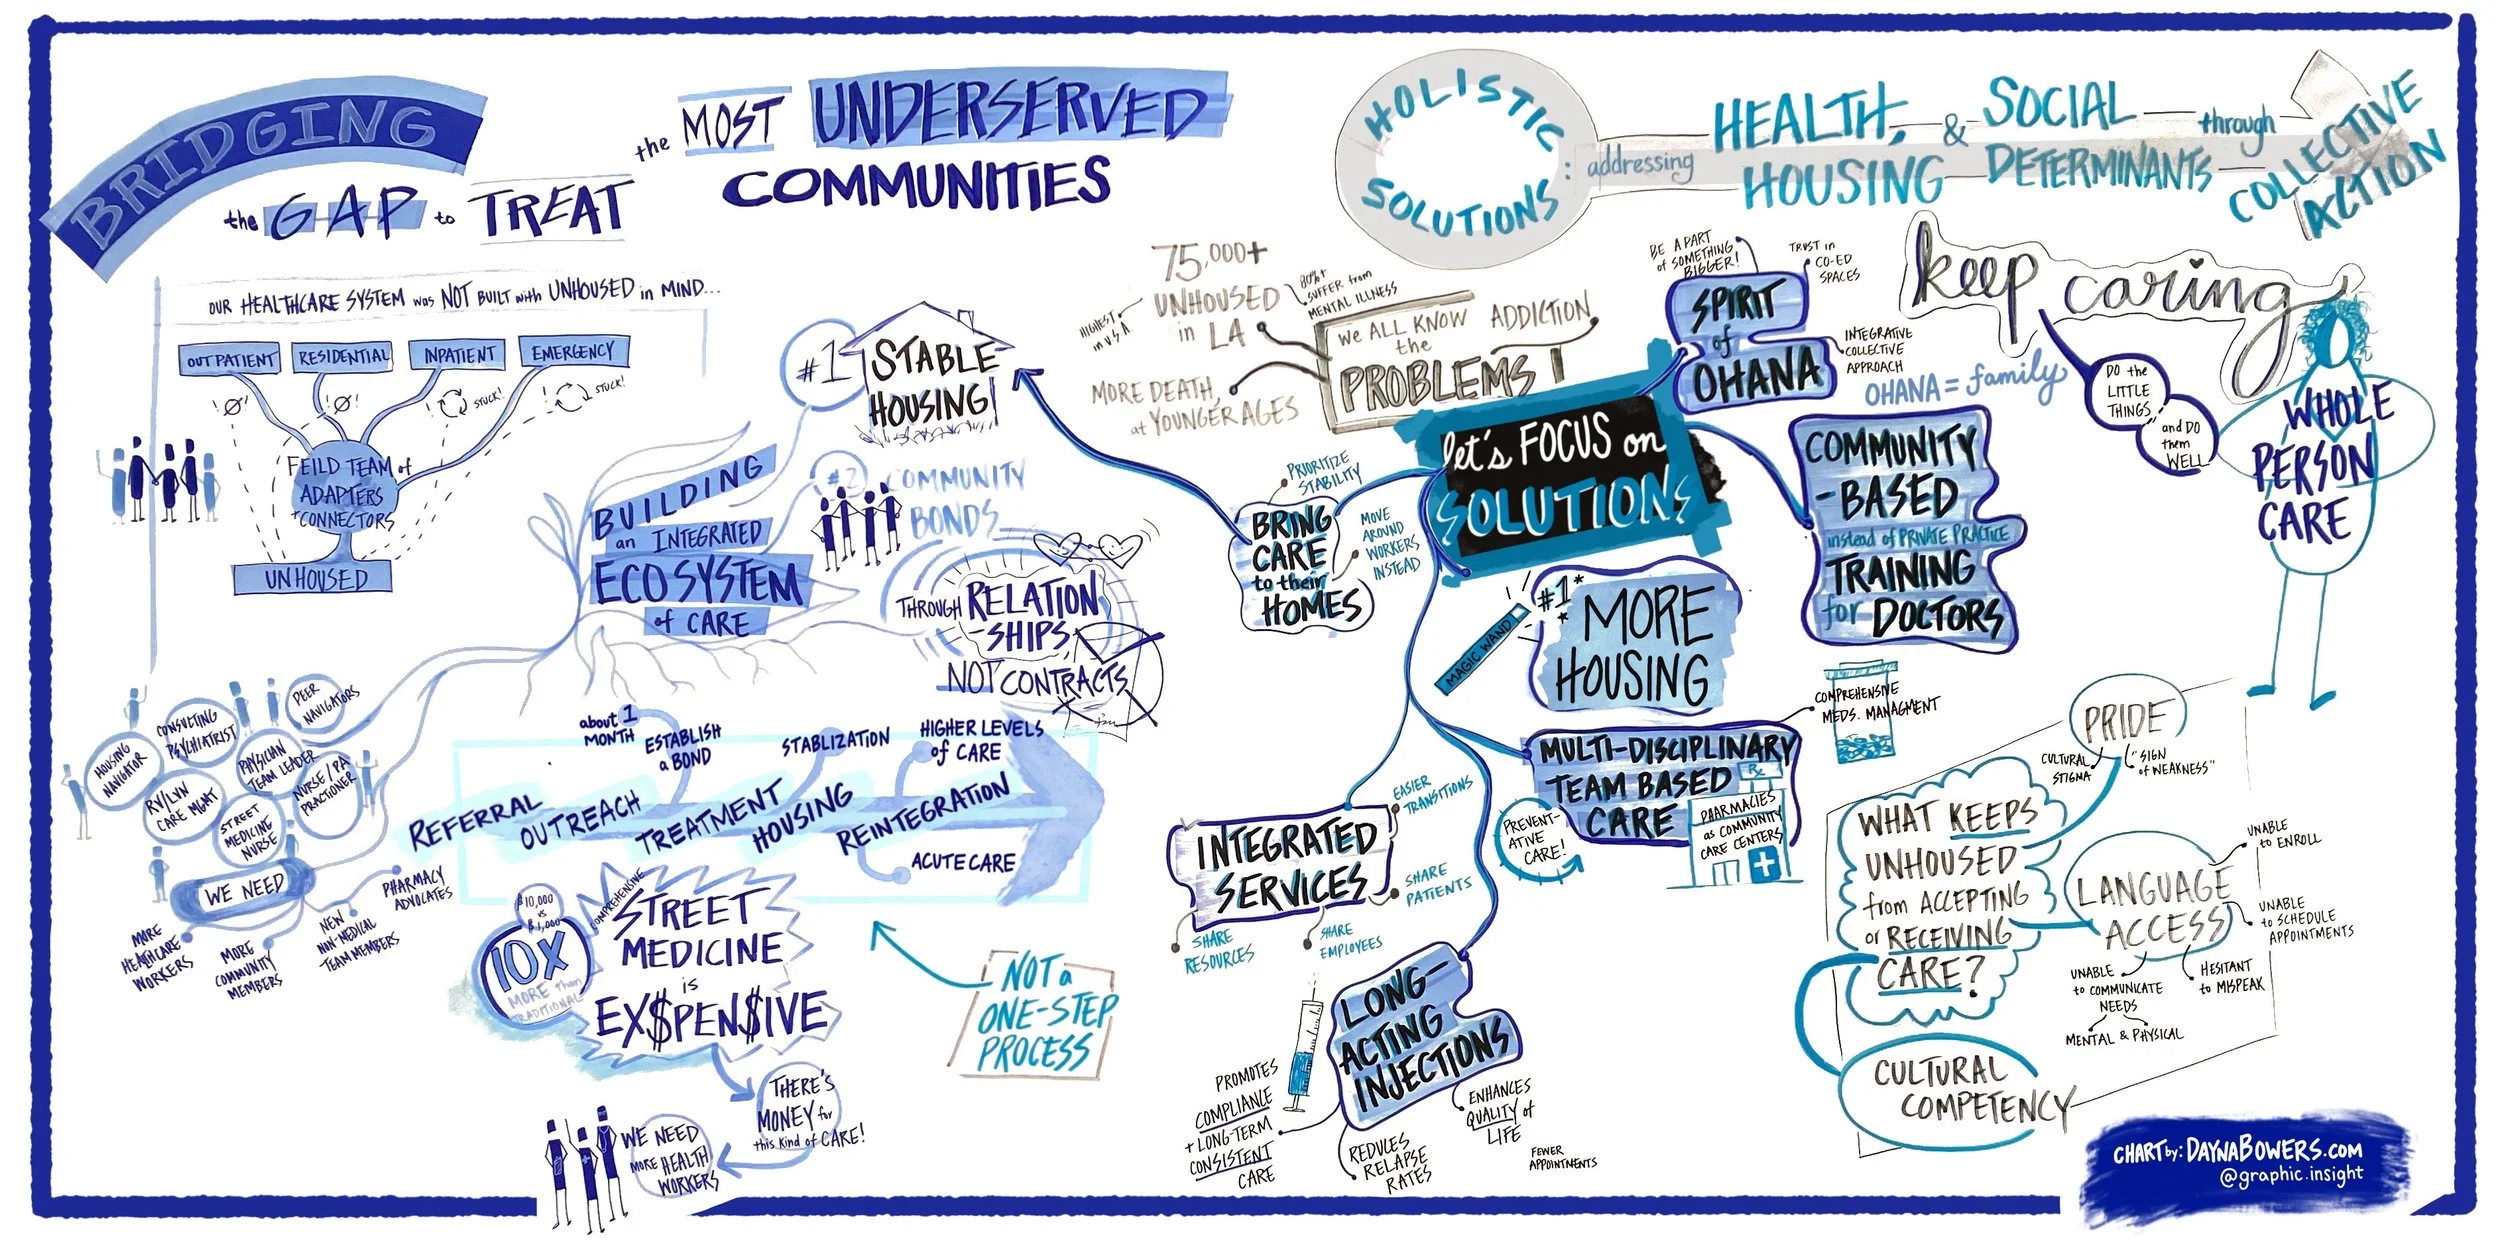 BRIDGING
the GAP to TREAT
the MOST UNDERSERVED
COMMUNITIES
OUR HEALTHCARE SYSTEM was NOT BUILT with UNHOUSED in MIND...
OUTPATIENT
RESIDENTIAL
INPATIENT
EMERGENCY
STUCK!
STUCK!
FEILD TEAM of
ADAPTERS
+ CONNECTORS
UNHOUSED
#1
STABLE
HOUSING
#2
COMMUNITY
BONDS
BUILDING
an INTEGRATED
ECOSYSTEM
of CARE
THROUGH RELATION
-SHIPS,
NOT CONTRACTS
HOUSING
NAVIGATOR
CONSULTING
PSYCHIATRIST
PEER
NAVIGATORS
PHYSICIAN
TEAM LEADER
NURSE/PA
PRACTIONER
RV/LVN
CARE MGMT
STREET
MEDICINE
NURSE
WE NEED
MORE
HEALTHCARE
WORKERS
MORE
COMMUNITY
MEMBERS
NEW
NON-MEDICAL
TEAM MEMBERS
PHARMACY
ADVOCATES
about 1
MONTH
ESTABLISH
a BOND
STABLIZATION
HIGHER LEVELS
of CARE
REFERRAL
OUTREACH
TREATMENT
HOUSING
REINTEGRATION
ACUTE CARE
$10,000
vs
$1,000
10X
MORE than
TRADITIONAL
COMPREHENSIVE
STREET
MEDICINE
is
EX$PEN$IVE
NOT a
ONE-STEP
PROCESS
THERE'S
MONEY for
this kind of CARE!
WE NEED
MORE HEALTH
WORKERS
HOLISTIC
SOLUTIONS
: addressing
HEALTH,
HOUSING
& SOCIAL
DETERMINANTS
through
COLLECTIVE
ACTION
75,000+
UNHOUSED
in LA
HIGHEST
in U.S.A.
80%+
SUFFER from
MENTAL ILLNESS
MORE DEATH,
at YOUNGER AGES
WE ALL KNOW
the
PROBLEMS!
ADDICTION
let's FOCUS on
SOLUTIONS
BE A PART
of SOMETHING
BIGGER!
TRUST in
CO-ED
SPACES
SPIRIT
of
OHANA
INTEGRATIVE
COLLECTIVE
APPROACH
OHANA = family
keep caring
DO the
LITTLE
THINGS
and DO
them
WELL
WHOLE
PERSON
CARE
COMMUNITY
-BASED
instead of PRIVATE PRACTICE
TRAINING
for DOCTORS
PRIORITIZE
STABILITY
BRING
CARE
to their
HOMES
MOVE
AROUND
WORKERS
INSTEAD
MAGIC WAND
#1*
*
MORE
HOUSING
COMPREHENSIVE
MEDS. MANAGMENT
MULTI-DISCIPLINARY
TEAM BASED
CARE
PREVENT-
ATIVE
CARE!
Rx
PHARMACIES
as COMMUNITY
CARE CENTERS
INTEGRATED
SERVICES
EASIER
TRANSITIONS
SHARE
PATIENTS
SHARE
RESOURCES
SHARE
EMPLOYEES
LONG-
ACTING
INJECTIONS
PROMOTES
COMPLIANCE
+ LONG-TERM
CONSISTENT
CARE
REDULES
RELAPSE
RATES
ENHANCES
QUALITY of
LIFE
FEWER
APPOINTMENTS
PRIDE
CULTURAL
STIGMA
"SIGN
of WEAKNESS"
WHAT KEEPS
UNHOUSED
from ACCEPTING
or RECEIVING
CARE?
LANGUAGE
ACCESS
UNABLE
to ENROLL
UNABLE
to SCHEDULE
APPOINTMENTS
HESITANT
to MISPEAK
UNABLE
to COMMUNICATE
NEEDS
MENTAL & PHYSICAL
CULTURAL
COMPETENCY
CHART by: DAYNABOWERS.COM
@graphic.insight